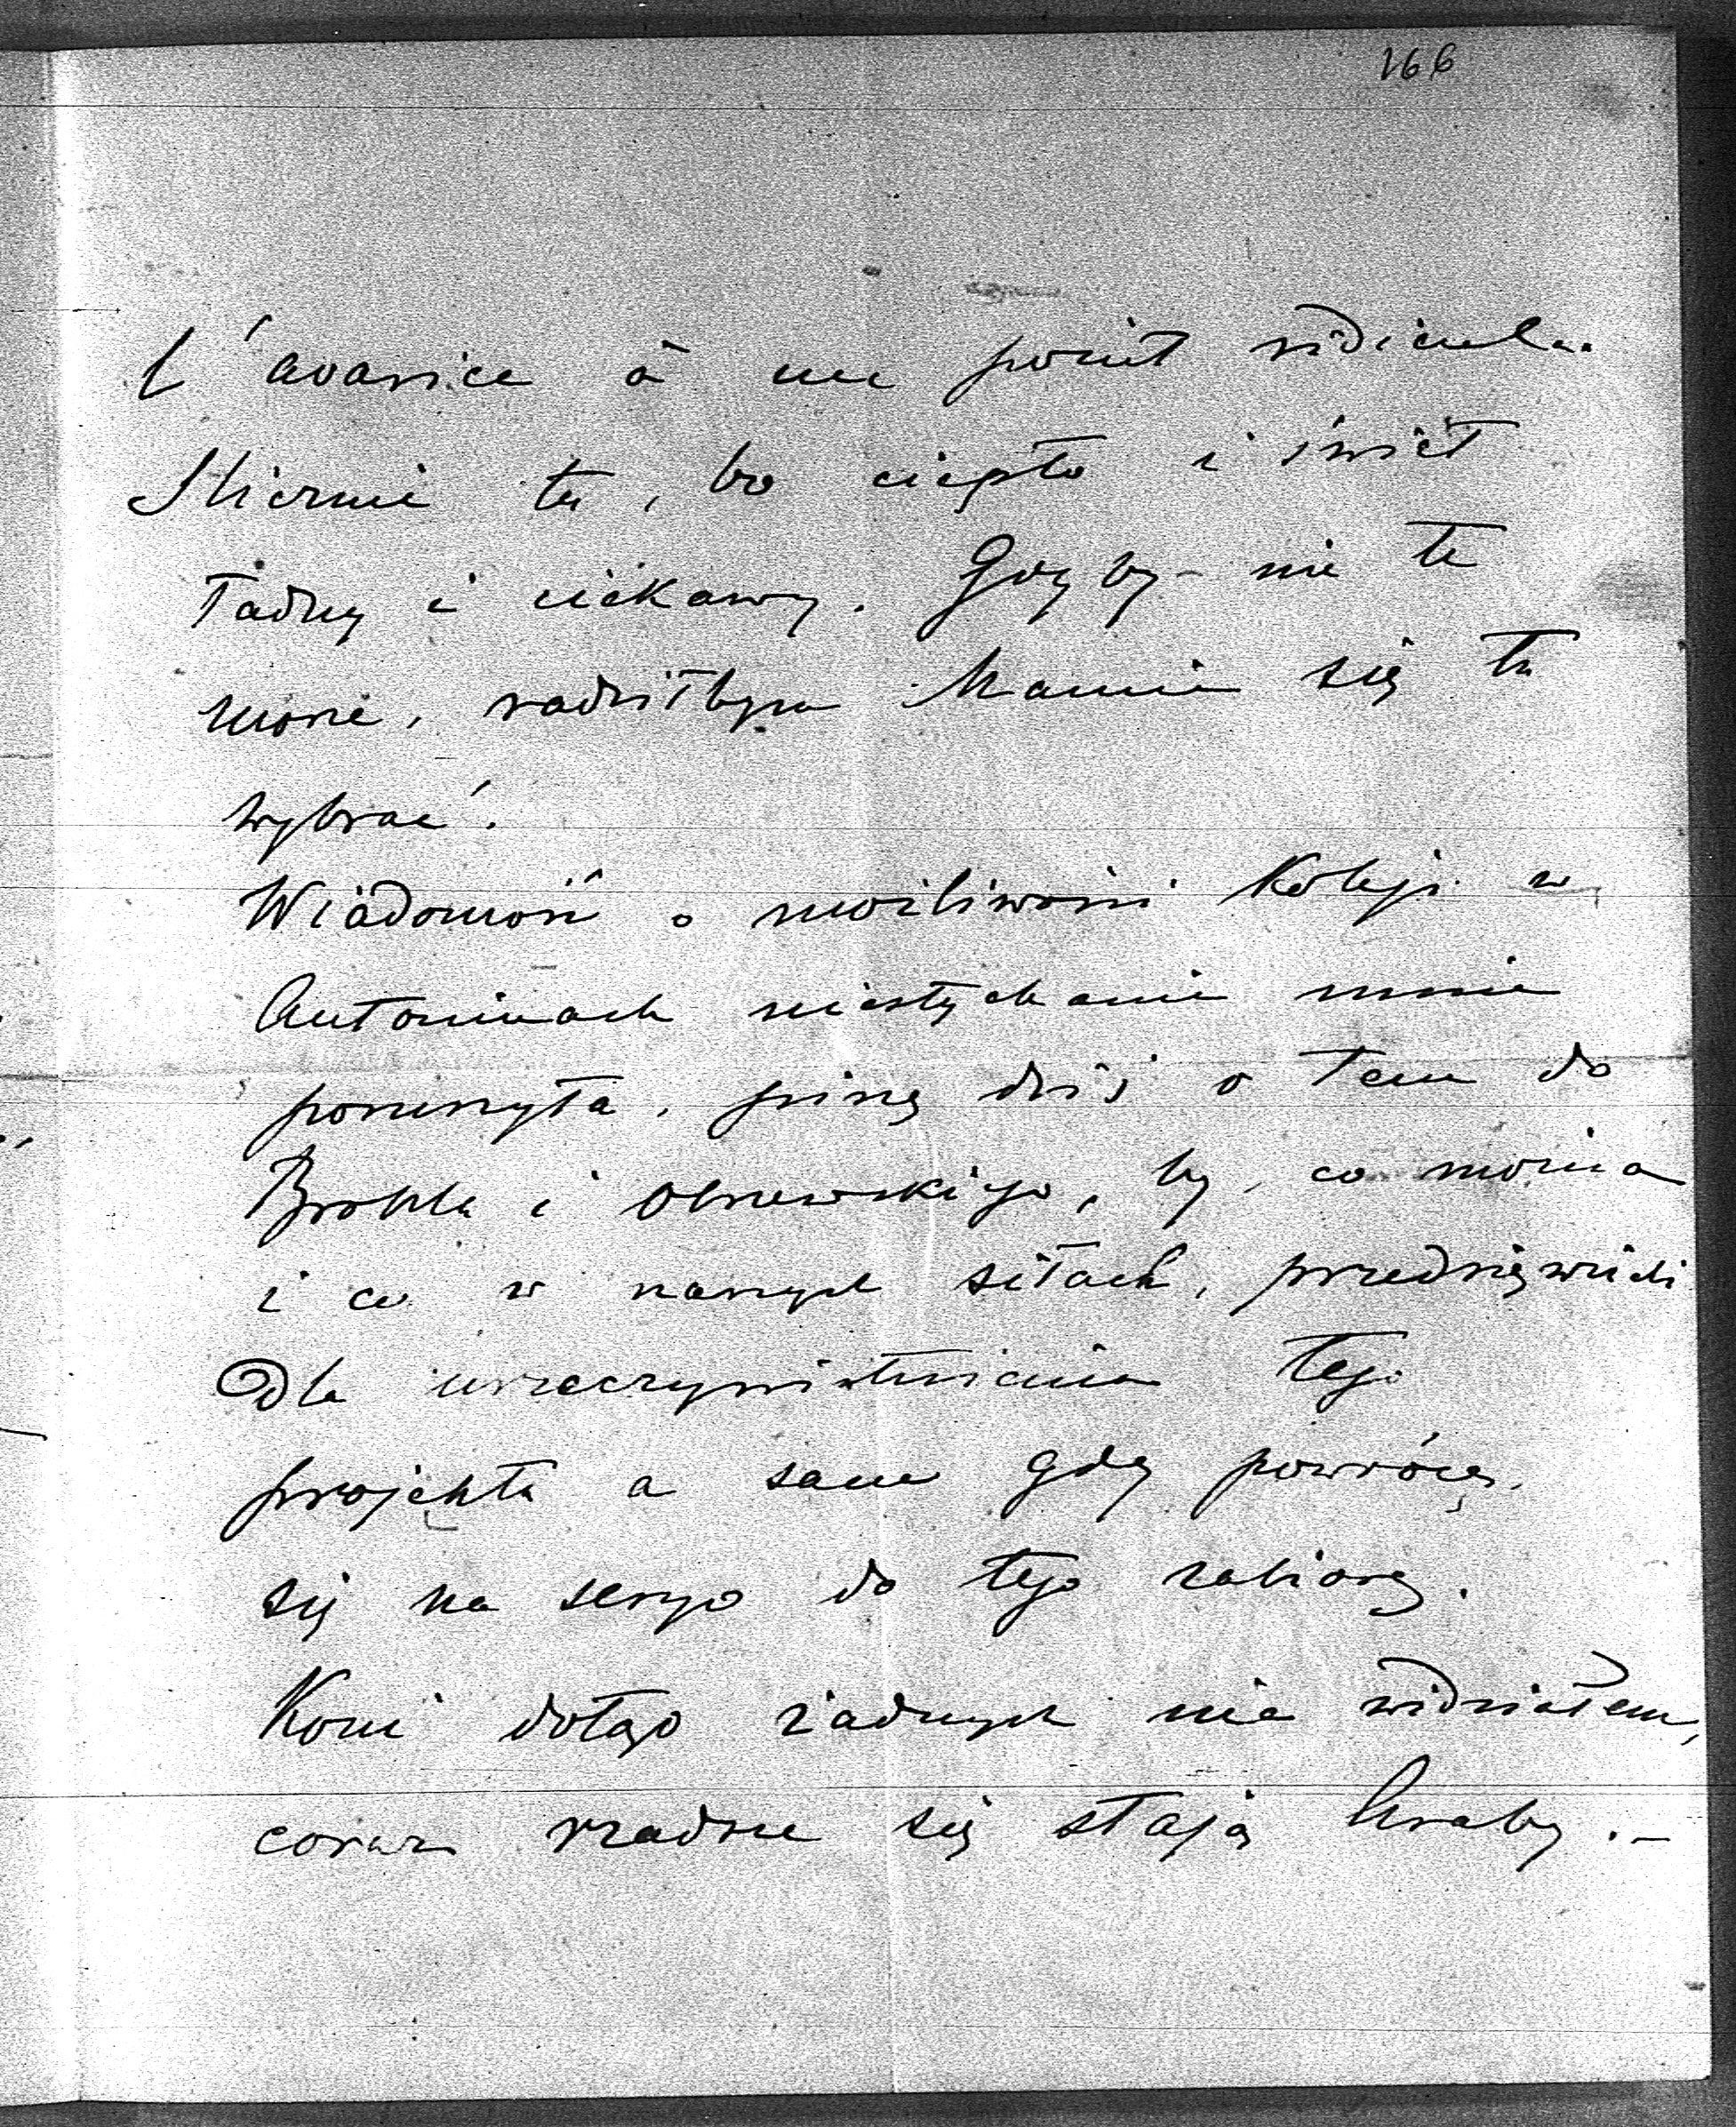 166
L'avarice à un point ridicule.
Ślicznie tu, bo ciepło i świat
ładny i ciekawy. Gdyby nie te
morze, radziłbym Mamie się tu
wybrać.
Wiadomość o możliwości koleji w
Antoninach niesłychanie mnie
poruszyła, piszę dziś o tem do
i co w naszych siłach, przedsięwzięli
Dla urzeczywistnienia tego
projektu a sam gdy powrócę,
się na seryo do tego zabiorę.
Koni dotąd żadnych nie widziałem,
coraz rzadsze się stają Araby.–